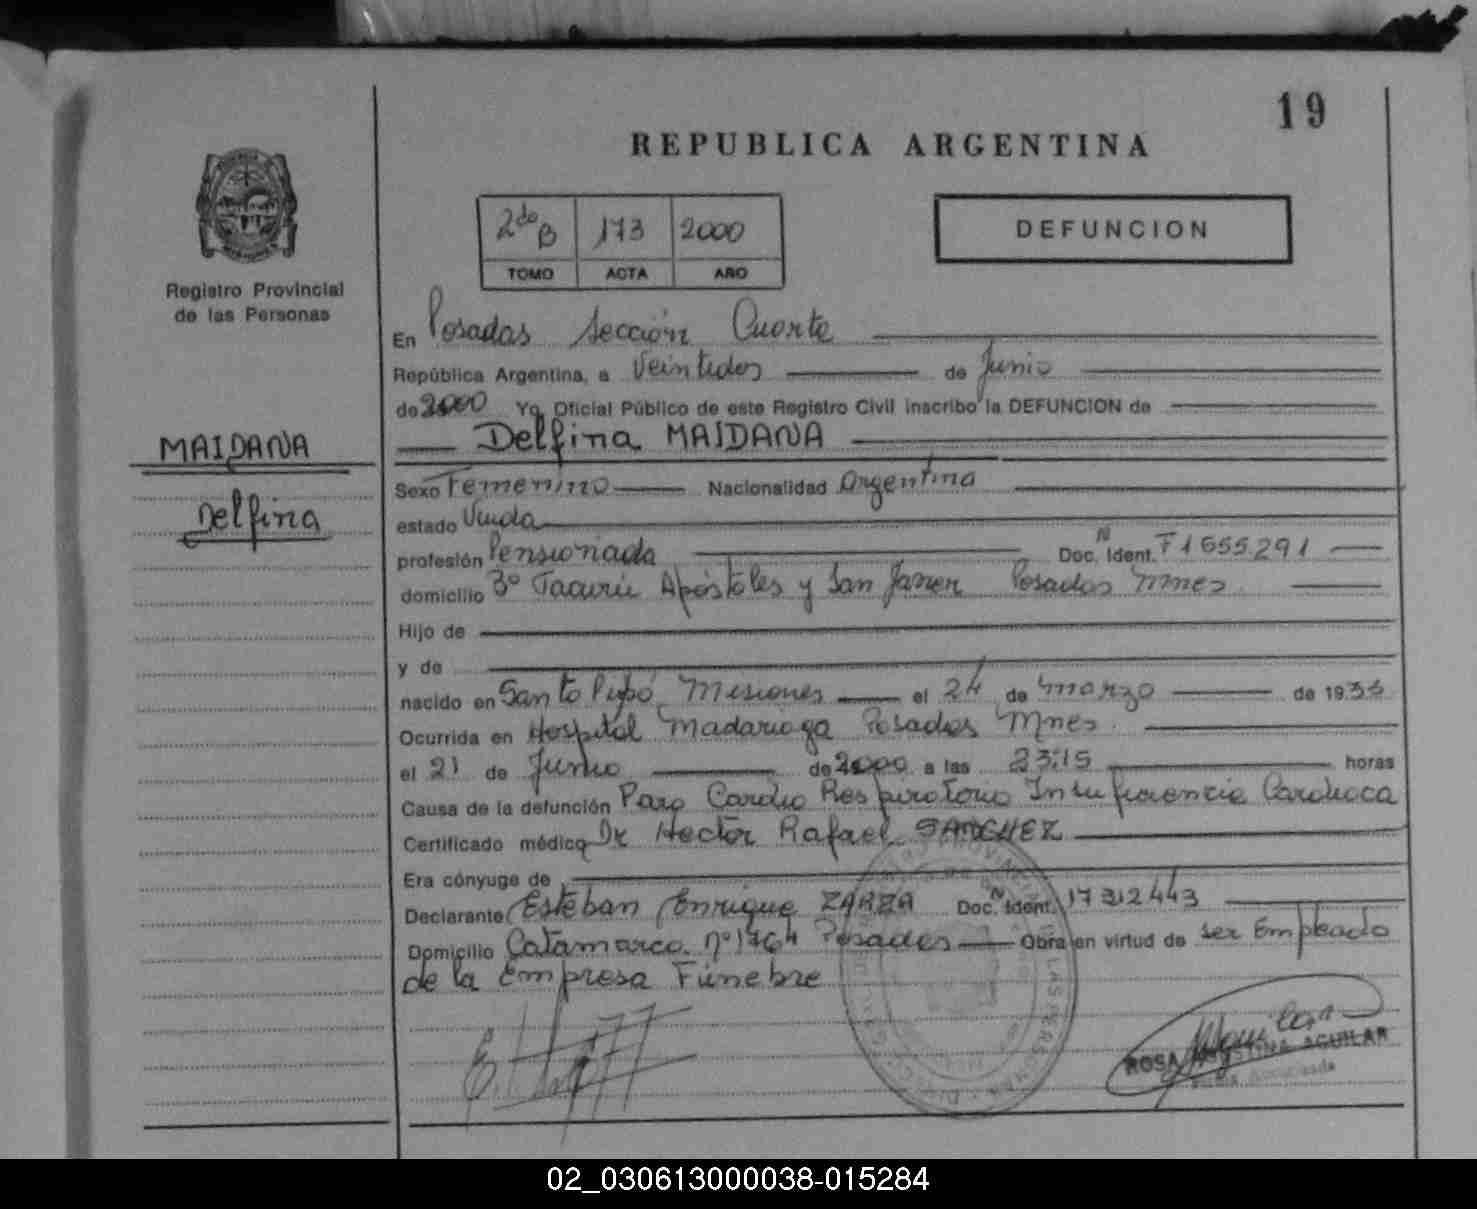 19
REPUBLICA ARGENTINA
2do B 173 2000
TOMO ACTA AÑO
DEFUNCION
Registro Provincial
de las Personas
En Posadas Sección Cuarta
República Argentina, a Veintidos de Junio
de 2000 Yo, Oficial Público de este Registro Civil inscribo la DEFUNCION de
MAIDANA
Delfina
Delfina MAIDANA
Sexo Femenino Nacionalidad Argentina
estado Viuda
profesión Pensionada Doc. Ident. N F1555291
domicilio 3º Tacurú Apóstoles y San Javier Posadas Mnes.
Hijo de
y de
nacido en Santo Pipó Misiones el 24 de marzo de 1933
Ocurrida en Hospital Madariaga Posadas Mnes.
el 21 de Junio de 2000 a las 23:15 horas
Causa de la defunción Paro Cardio Respiratorio Insuficiencia Cardiaca
Certificado médico Dr Hector Rafael SANCHEZ
Era cónyuge de
Declarante Esteban Enrique ZARZA Doc. Ident. N 17312443
Domicilio Catamarca nº 1764 Posadas Obra en virtud de ser Empleado
de la Empresa Fúnebre
ROSA AGUSTINA AGUILAR
02_030613000038-015284